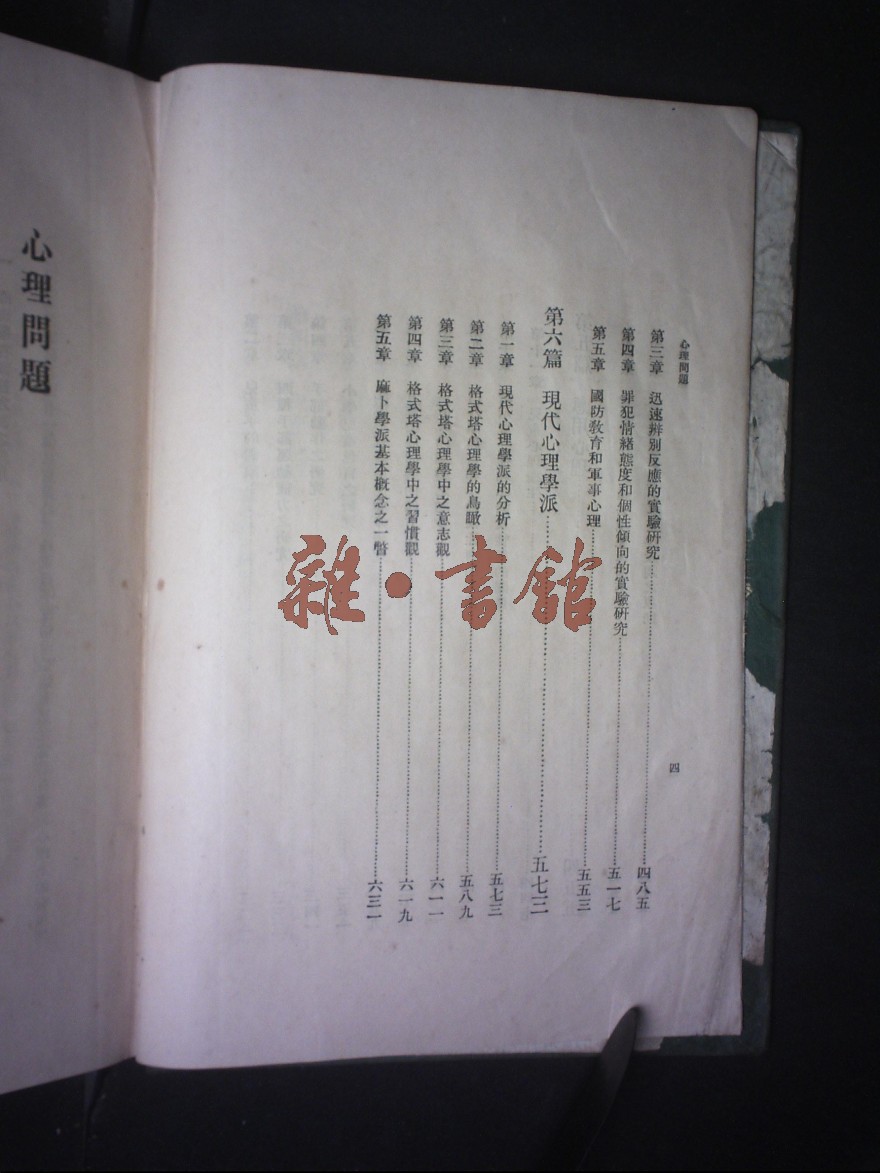 心理問題
四
第三章　迅速辨別反應的實驗研究……四八五
第四章　罪犯情緒態度和個性傾向的實驗研究……五一七
第五章　國防教育和軍事心理……五五三
第六篇　現代心理學派……五七三
第一章　現代心理學派的分析……五七三
第二章　格式塔心理學的鳥瞰……五八九
第三章　格式塔心理學中之意志觀……六一一
第四章　格式塔心理學中之習慣觀……六一九
第五章　麻卜學派基本概念之一瞥……六三一
心理問題
雜·書館